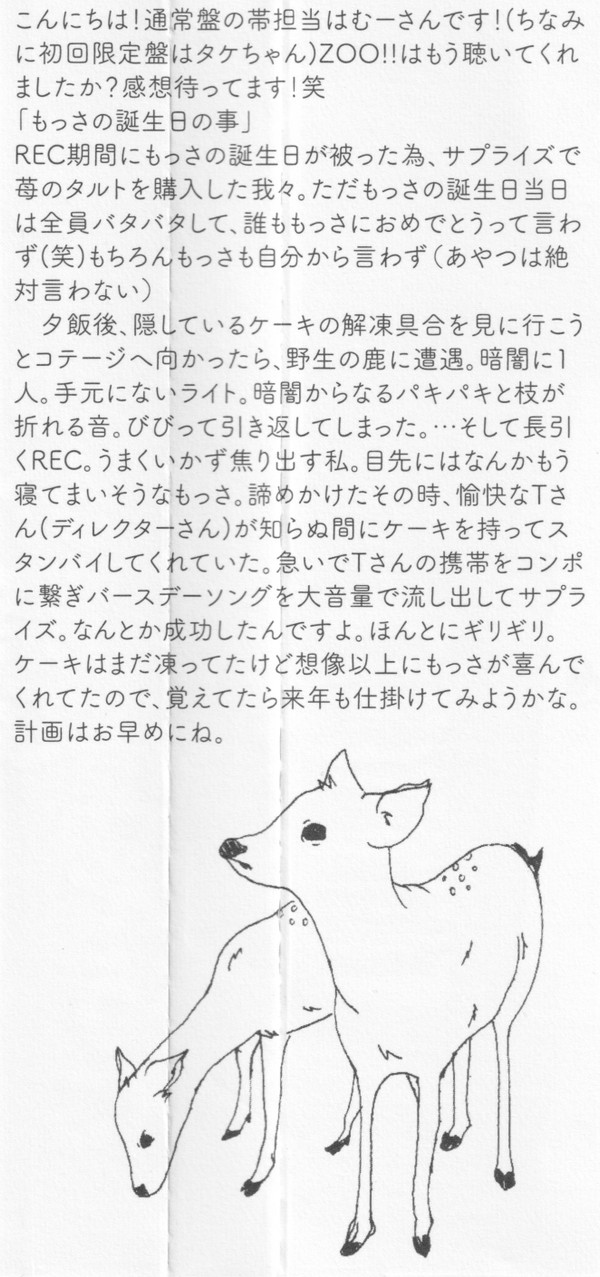 こんにちは!通常盤の帯担当はむーさんです!(ちなみ
に初回限定盤はタケちゃん)ZOO!!はもう聴いてくれ
ましたか?感想待ってます!笑
「もっさの誕生日の事」
REC期間にもっさの誕生日が被った為、サプライズで
苺のタルトを購入した我々。ただもっさの誕生日当日
は全員バタバタして、誰ももっさにおめでとうって言わ
ず(笑)もちろんもっさも自分から言わず(あやつは絶
対言わない)
　夕飯後、隠しているケーキの解凍具合を見に行こう
とコテージへ向かったら、野生の鹿に遭遇。暗闇に1
人。手元にないライト。暗闇からなるパキパキと枝が
折れる音。びびって引き返してしまった。…そして長引
くREC。うまくいかず焦り出す私。目先にはなんかもう
寝てまいそうなもっさ。諦めかけたその時、愉快なTさ
ん(ディレクターさん)が知らぬ間にケーキを持ってス
タンバイしてくれていた。急いでTさんの携帯をコンポ
に繋ぎバースデーソングを大音量で流し出してサプラ
イズ。なんとか成功したんですよ。ほんとにギリギリ。
ケーキはまだ凍ってたけど想像以上にもっさが喜んで
くれてたので、覚えてたら来年も仕掛けてみようかな。
計画はお早めにね。